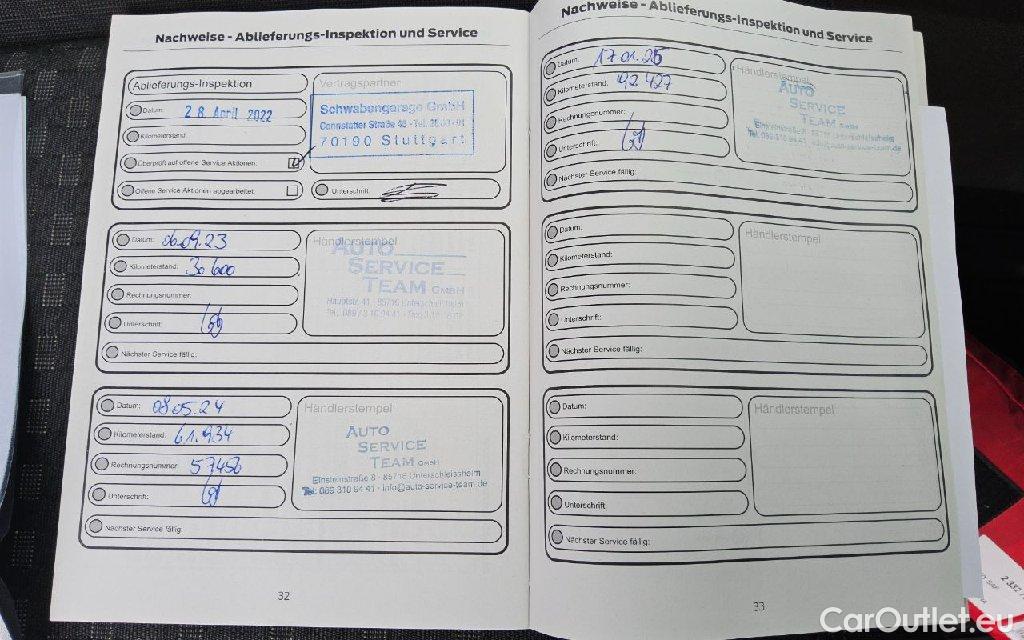 Nachweise - Ablieferungs-Inspektion und Service
Ablieferungs-Inspektion
Datum: 28. April 2022
Kilometerstand:
Überprüft auf offene Service Aktionen:
Offene Service Aktionen abgearbeitet:
Vertragspartner
Schwabengarage GmbH
70190 Stuttgart
Unterschrift:
Datum: 06.09.23
Kilometerstand: 30600
Rechnungsnummer:
Unterschrift:
Nächster Service fällig:
Händlerstempel
AUTO
SERVICE
TEAM GMBH
Datum: 08.05.24
Kilometerstand: 61.934
Rechnungsnummer: 57456
Unterschrift:
Nächster Service fällig:
Händlerstempel
AUTO
SERVICE
TEAM GmbH
Einsteinstraße 8 - 85716 Unterschleissheim
info@auto-service-team.de
32
Nachweise - Ablieferungs-Inspektion und Service
Datum: 17.01.25
Kilometerstand: 92.427
Rechnungsnummer:
Unterschrift:
Nächster Service fällig:
Händlerstempel
AUTO
SERVICE
TEAM GmbH
Datum:
Kilometerstand:
Rechnungsnummer:
Unterschrift:
Nächster Service fällig:
Händlerstempel
Datum:
Kilometerstand:
Rechnungsnummer:
Unterschrift:
Nächster Service fällig:
Händlerstempel
33
CarOutlet.eu